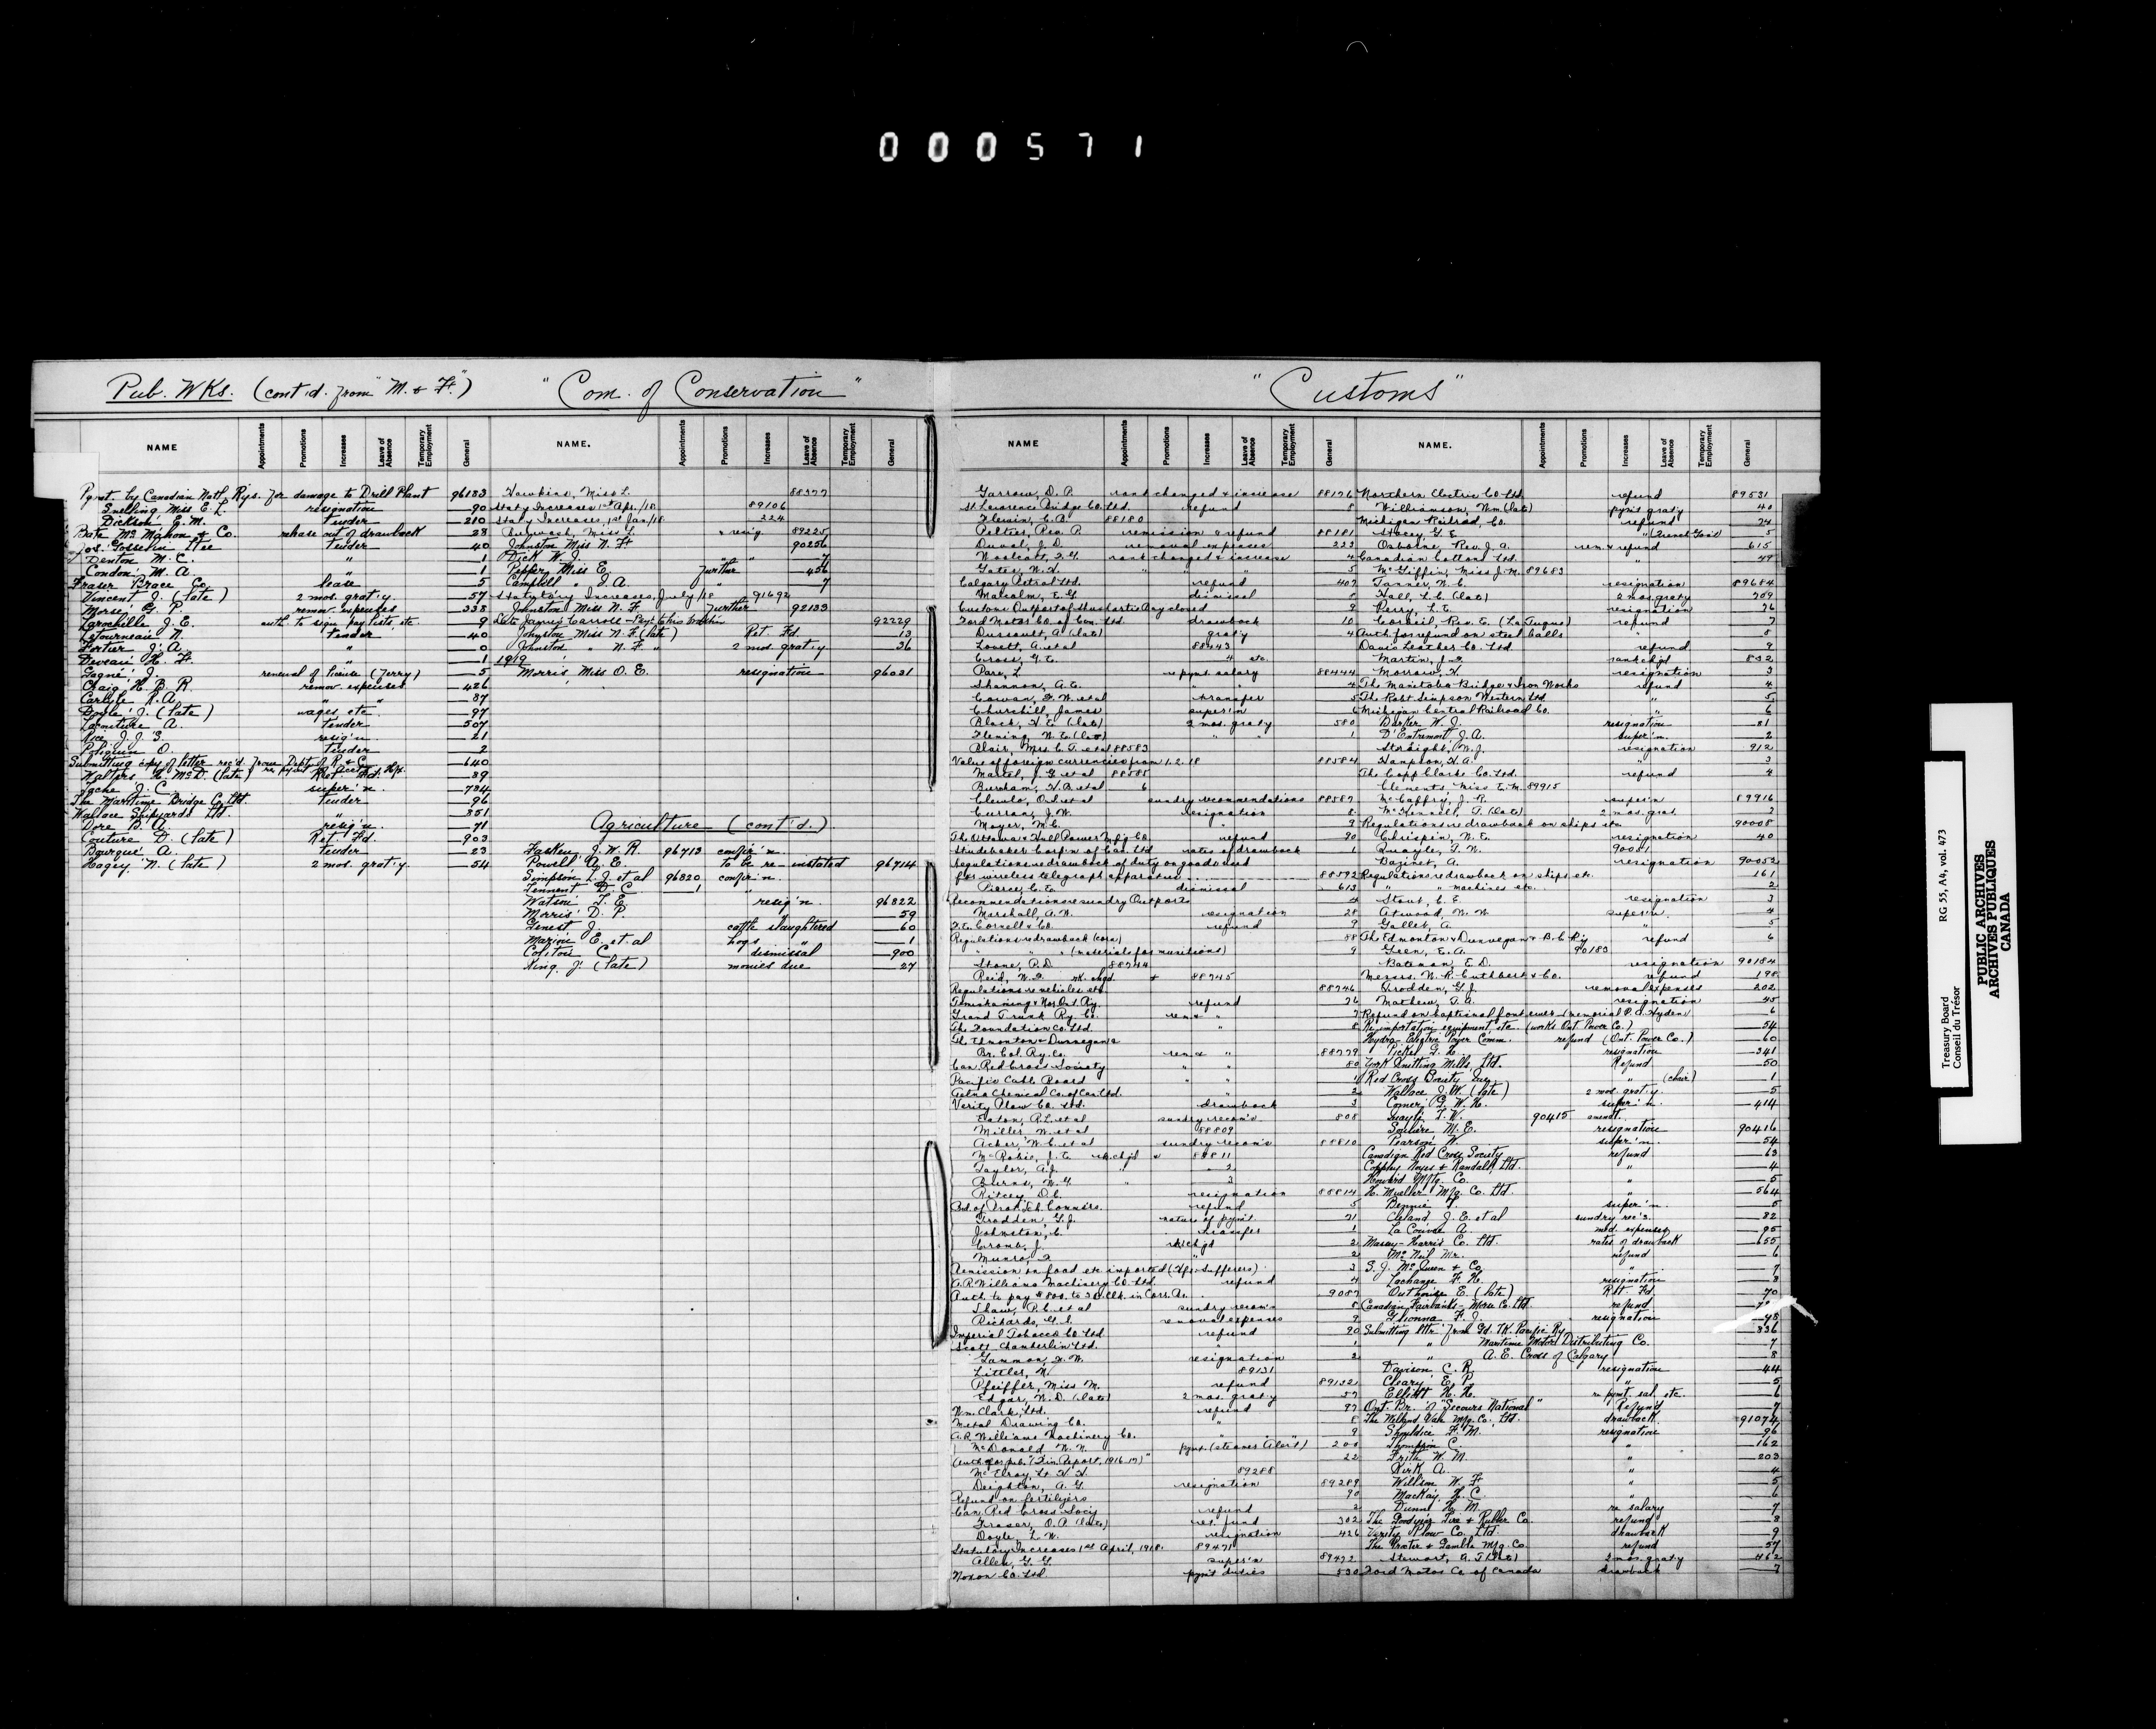 000571
Pub. WKs. (cont'd. from "M. & F.")
"Com. of Conservation"
"Customs"
NAME Appointments Promotions Increases Leave of Absence Temporary Employment General
NAME. Appointments Promotions Increases Leave of Absence Temporary Employment General
NAME Appointments Promotions Increases Leave of Absence Temporary Employment General
NAME. Appointments Promotions Increases Leave of Absence Temporary Employment General
Pymt. by Canadian Natl. Rys. for damage to Drill Plant 96183
Snelling Miss E. L. resignation 90
Dickson, E. M. tender 210
Bate McMahon & Co. rebase out of drawback 28
Jos. Gosselin Ltee tender 40
Denton M. C. " 1
Condon M. A. " 1
Fraser Brace Co. lease 5
Vincent J. (late) 2 mos. grat'y 57
Morse, G. P. remov. expenses 338
Larochelle J. E. auth. to sign pay lists, etc. 9
Letourneau N. tender 40
Fortier J. A. " 0
Deveau H. F. " 1
Gagné, J. renewal of license (ferry) 5
Craig H. B. R. remov. expenses 426
Carlyle R. A. " " 87
Doyle J. (late) wages, etc. 97
Larmeture A. tender 507
Rice J. J. S. resig'n 21
Poliquin O. tender 2
Submitting copy of letter rec'd. from Dept of R & C 640
Walters H. McD. (late) Ret. Fd. 39
Tache J. C. super'n. 734
The Maritime Bridge Co. Ltd. tender 96
Wallace Shipyards Ltd. " 351
Dore D. A. resig'n. 71
Couture D. (late) Ret. Fd. 903
Bourque A. tender 23
Hagey N. (late) 2 mos. grat'y. 54
Hawkins, Miss L. 88377
Stat'y Increases 1st Apr./18. 89106
Stat'y Increases, 1st Jan/18. 224
Burwash, Miss L. " resig. 89225
Johnston Miss N. F. 90256
Dick W. J. " " 7
Pepper, Miss E. further 456
Campbell " J. A. " 7
Statutory Increases, July/18 91692
Johnston Miss N. F. further 92133
Late James Carroll - Pay't to his widow 92229
Johnston Miss N. F. (late) Ret. Fd. 13
Johnston " N. F. " 2 mos. grat'y 36
1919
Morris Miss O. E. resignation 96031
Agriculture (cont'd.)
Fasken J. W. R. 96713 confir'n.
Powell A. E. to be re-instated 96714
Simpson L. J. et al 96820 confir'n.
Tennent D. C. 1 "
Watson T. E. resig'n. 96822
Morris D. P. " 59
Genest J. cattle slaughtered 60
Marion E. et al hogs " 1
Colston C. dismissal 900
King J. (late) monies due 27
Garrow, D. P. rank changed & increase 88176
St. Lawrence Bridge Co. Ltd. refund 8
Flewin, C. B. 88180
Peltier, Rev. P. remission & refund 88181
Duval, J. D. removal expenses 223
Woolcott, F. G. rank changed & increase 4
Gates, W. H. " " 5
Calgary Petrol Ltd. refund 407
Malcolm, E. G. dismissal 8
Customs Outport of Shushartie Bay closed 9
Ford Motor Co. of Can. Ltd. drawback 10
Dussault, A. (late) grat'y 4
Lovett, A. et al 88443
Cross, G. E. 4 etc.
Park, L. re pymt. salary 88444
Shannon, A. E. " 4
Cowan, F. W. et al transfer 5
Churchill, James super'n 6
Black, H. E. (late) 2 mos. grat'y 580
Fleming W. E. (late) " " 1
Blair, Mrs. C. T. et al 88583
Value of foreign currencies from 1.2.18 88584
Martel, J. G. et al 88585
Burcham, H. B. et al 6
Clewlo, O. L. et al sundry recommendations 88587
Curran, J. W. resignation 8
Moyer, M. E. " 9
The Ottawa & Hull Power Mfg Co. refund 90
Studebaker Corp'n of Can. Ltd. rates of drawback 1
Regulations re drawback of duty on goods used
for wireless telegraph apparatus 88592
Pierce, C. E. dismissal 613
Recommendations re sundry Outports 4
Marshall, A. W. resignation 28
F. E. Cornell & Co. refund 9
Regulations re drawback (corn) 88
" " " (materials for munitions) 9
Stone, P. D. 88744
Reid, W. F. rk. chgd. + 88745
Regulations re vehicles etc. 88746
Temiskaming & Nor. Ont. Ry. refund 76
Grand Trunk Ry. Co. rem & " 7
The Foundation Co. Ltd. " 8
The Edmonton & Dunvegan &
Br. Col. Ry. Co. rem & " 88779
Can. Red Cross Society " " 80
Pacific Cable Board " " 1
Aetna Chemical Co. of Can. Ltd. 2
Verity Plow Co. Ltd. drawback 3
Eaton, R. L. et al sundry recom's 808
Miller, W. et al 88809
Acker, W. C. et al sundry recom's 88810
McRobie, J. E. rk. chgd + 88811
Taylor, A. J. " 2
Burns, W. G. " 3
Ritcey D. C. resignation 88814
refund 5
Grodden, G. J. nature of pymt. 21
Johnston, C. transfer 1
Cromb, J. rk chgd 2
Munro, F. " 2
Remission on food etc imported (Hfx. Sufferers) 3
A. R. Williams Machinery Co. Ltd. refund 4
9087
Shaw, P. C. et al sundry recom's 8
Richards, G. L. removal expenses 9
Imperial Tobacco Co. Ltd. refund 90
Scott Chamberlin Ltd. " 1
Gammon, H. W. resignation 2
Littler, N. 89131
Pfeiffer, Miss M. refund 89132
Edgar, W. D. (late) 2 mos. grat'y 57
Wm. Clark, Ltd. refund 97
Metal Drawing Co. " 8
A. R. Williams Machinery Co. " 9
McDonald W. N. pymt. (steamer "Alert") 200
22
McElroy, Lt. H. H. 89288
Deighton, A. G. resignation 89289
Refund on fertilizers 90
Can. Red Cross Soc'y refund 2
Fraser, O. A. (late) ret. fund 302
Doyle, L. W. resignation 426
Statutory Increases 1st April, 1918. 89471
Allen, G. G. super'n 89472
Noxon Co. Ltd. pym't duties 530
Northern Electric Co. Ltd. refund 89531
Williamson, Wm. (late) pym't grat'y 40
Michigan Railroad, Co. refund 74
Stacey, G. E. " 5
Osborne, Rev. J. A. rem. & refund 615
Canadian Cottons Ltd. " 49
McGiffin, Miss J. M. 89683
Tanner, N. C. resignation 89684
Hall, L. C. (late) 2 mos. grat'y 709
Perry, L. E. resignation 26
Corbeil, Rev. E. (La Tuque) refund 7
Auth. for refund on steel balls " 8
Davis Leather Co. Ltd. refund 9
Martin, J. F. rank chgd 832
Morrow, H. resignation 3
The Manitoba Bridge & Iron Works refund 4
The Robt. Simpson Western Ltd. " 5
Michigan Central Railroad Co. " 6
Barker W. J. resignation 81
D'Entremont J. A. super'n. 2
Straight, W. J. resignation 912
Hampson, H. A. " 3
The Copp Clark Co. Ltd. refund 4
Clements, Miss E. M. 89915
McCaffry, J. R. super'n 89916
McKinnell, T. (late) 2 mos. grat.
Regulations re drawback on ships etc 90008
Chrispin, W. E. resignation 40
Quayle, F. N. 90051
Bazinet, A. resignation 90052
Regulations re drawback on ships etc. 161
" " " machines etc. 2
Stout, C. E. resignation 3
Atwood, N. N. super'n. 4
Gallet, A. " 5
The Edmonton & Dunvegan & B. C. Ry. refund 6
Green, E. A. 90183
Bateman, E. D. resignation 90184
Messrs. N. R. Cuthbert & Co. refund 198
Grodden, G. J. removal expenses 202
Mathew, T. A. resignation 45
Refund on baptismal font 6
Re importation equipment etc. (works Ont. Power Co.) 54
Hydro-Electric Power Comm. refund (Ont. Power Co.) 60
Pickel G. H. resignation 341
York Knitting Mills, Ltd. Refund 50
Red Cross Society " (chair) 1
Wallace J. W. (late) 2 mos. grat'y. 5
Comer G. W. H. super'n. 414
Quayle F. N. 90415 amendt.
Squire M. E. resignation 90416
Pearson W. super'n. 54
Canadian Red Cross Society refund 63
Copphy Noyes & Randall, Ltd. " 4
Howard Mfg. Co. " 5
H. Mueller Mfg. Co. Ltd. " 564
Bennie T. super'n. 5
Cleland J. E. et al sundry rec's. 82
La Couvee A. med. expenses 95
Massey-Harris Co. Ltd. rates of drawback 655
McNeil Mr. refund 6
S. J. McQueen & Co. " 7
Lachance F. H. resignation 8
Outhouse E. (late) Ret. Fd. 70
Canadian Fairbanks-Morse Co. Ltd. refund
Glionna F. J. resignation 48
Submitting lttr. from Gd. Tk. Pacific Ry. 336
" " Maritime Motor Distributing Co. 7
" " A. E. Cross of Calgary 8
Davison C. R. resignation 44
Cleary E. P. " 5
Elliott H. H. re pymt. sal. etc. 6
Ont. Br. of "Secours National" Refund 7
The Welland Vale Mfg. Co. Ltd. drawback 91074
Shouldice F. M. resignation 96
Thompson C. " 162
Frith W. M. " 203
Kirk A. " 4
Willson W. F. " 5
MacKay H. C. " 6
Dunn H. M. re salary 7
The Goodyear Tire & Rubber Co. refund 8
Verity Plow Co. Ltd. drawback 9
The Procter & Gamble Mfg. Co. refund 57
Stewart, A. T. (late) 2 mos. grat'y 462
Ford Motor Co of Canada drawback 7
Treasury Board
Conseil du Trésor
RG 55, A4, vol. 473
PUBLIC ARCHIVES
ARCHIVES PUBLIQUES
CANADA